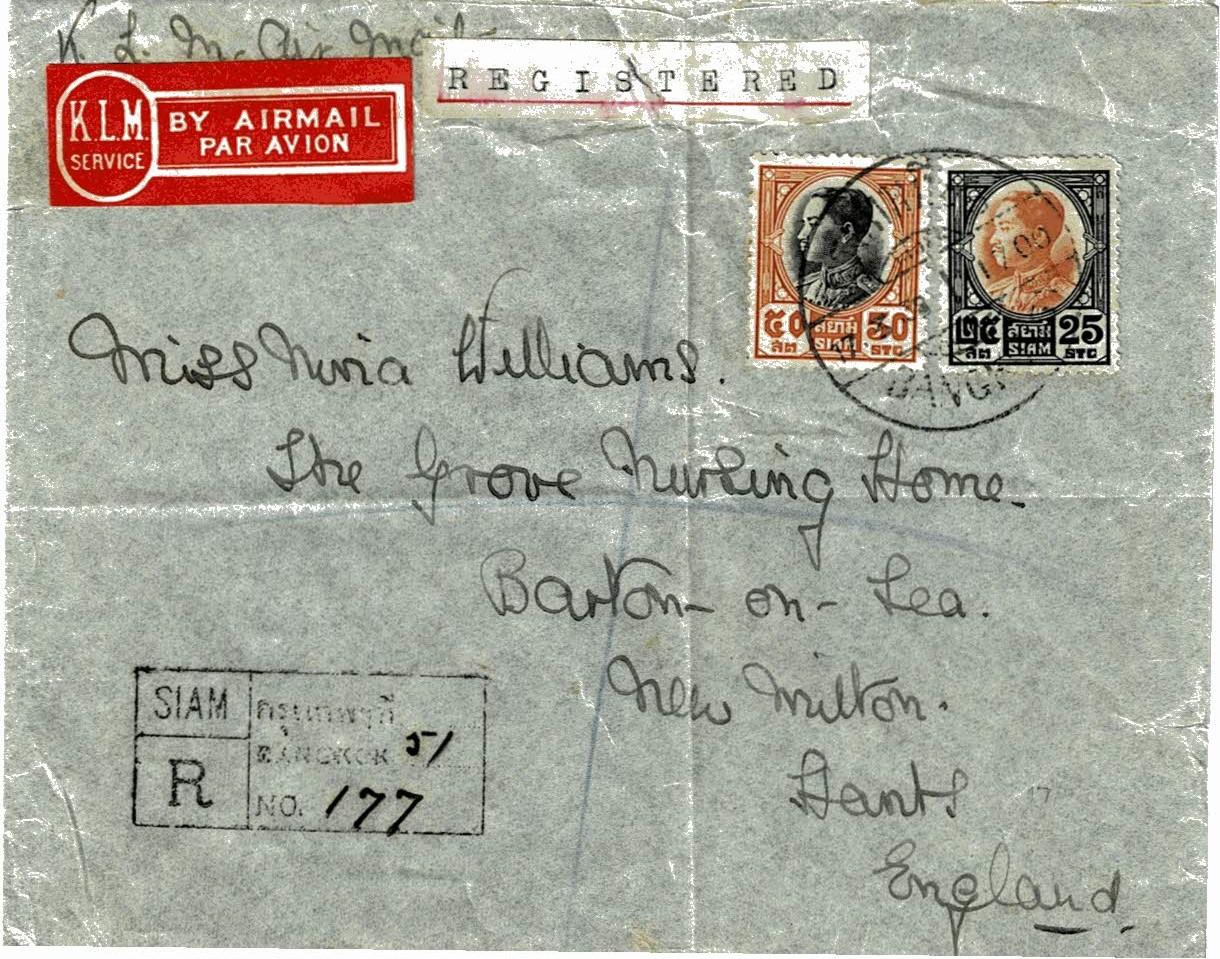 K. L. M. Air Mail
K.L.M.
SERVICE
BY AIRMAIL
PAR AVION
REGISTERED
๕๐ สยาม 50
สต SIAM STG
๒๕ สยาม 25
สต SIAM STG
Miss Nivia Williams.
The Grove Nursing Home.
Barton-on-Sea.
New Milton.
Hants
England.
SIAM
R
กรุงเทพฯที่
BANGKOK 51
NO. 177